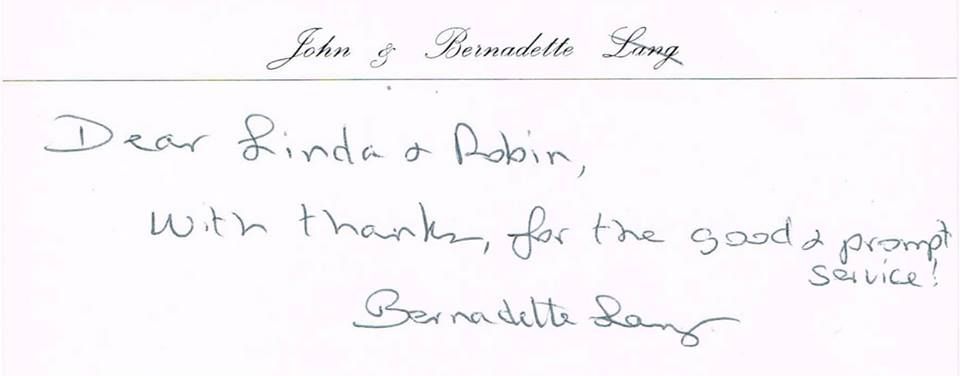 John & Bernadette Lang
Dear Linda & Robin,
with thanks, for the good & prompt
service!
Bernadette Lang